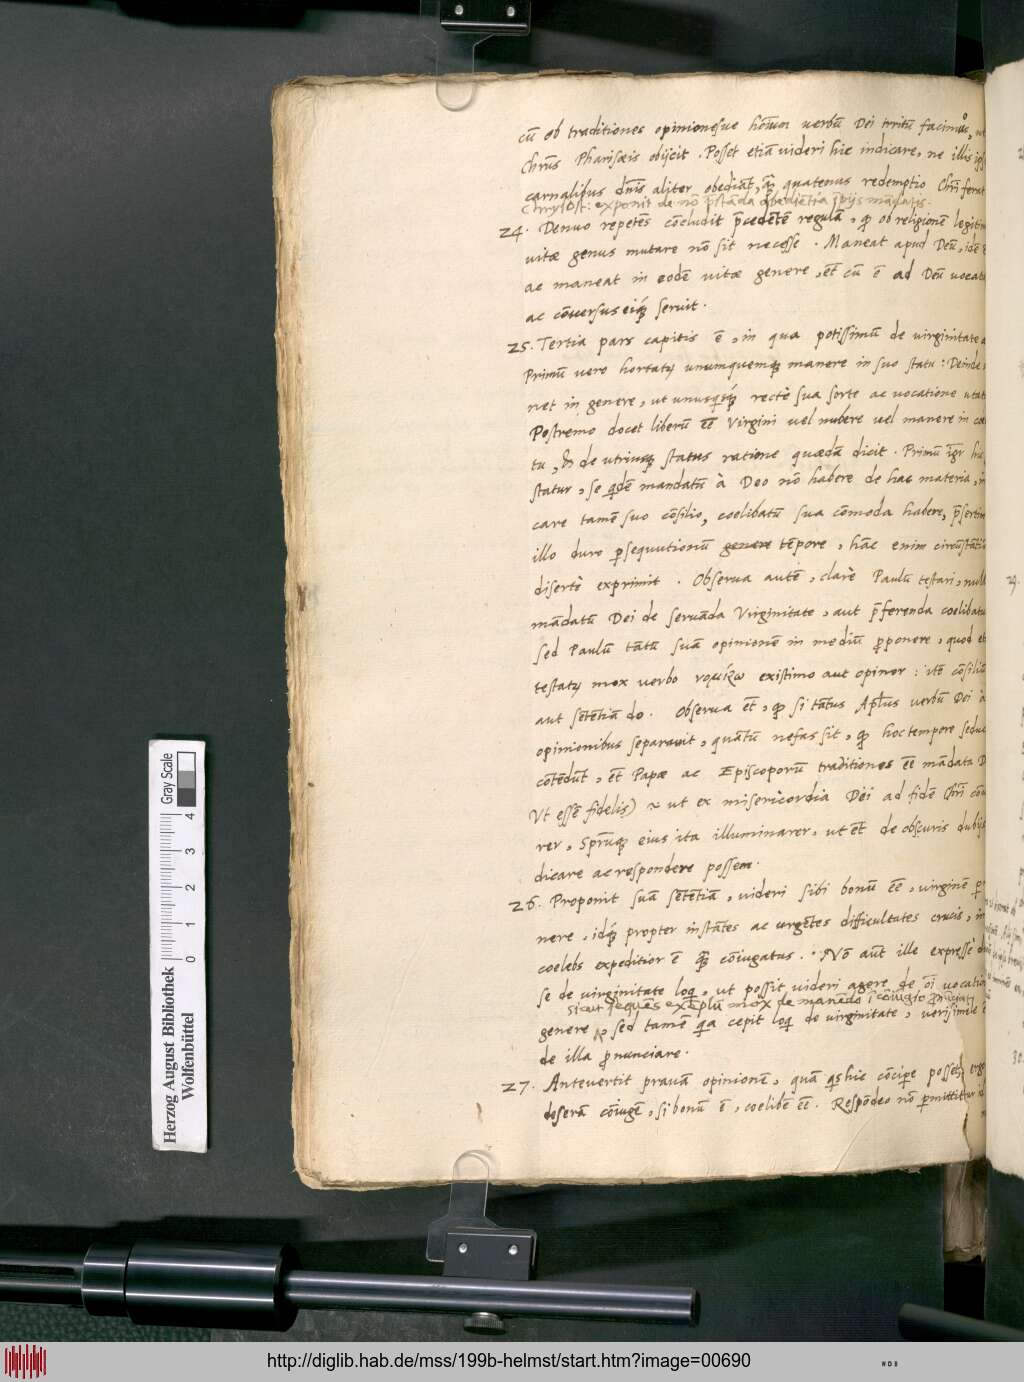 cū ob traditiones opinionesue hoīum uerbū Dei irritū facimus,
Chrūs Pharisæis obijcit. Posset etiā uideri hic indicare, ne illis
carnalibus dn̄is aliter obediāt, quatenus redemptio Chrī ferat
Chrysost: exponit de nō præstāda obedientia impijs mādatis.
24. Denuo repetēs cōcludit p̄cedētē regulā, ob religionē
uitæ genus mutare nō sit necesse. Maneat apud Deū, idē
ac maneat in eodē uitæ genere, et̄ cū ē ad Deū
ac cōuersus eiq́ȝ seruit.
25. Tertia pars capitis ē, in qua potissimū de uirginitate
Primū uero hortatȝ unumquemqȝ manere in suo statu: Deinde
net in genere, ut unusquisqȝ rectè sua sorte ac uocatione
Postremo docet liberū eē Virgini uel nubere uel manere in
tu, & de utriusqȝ status ratione quædā dicit. Primū igr
statur, se qidē mandatū à Deo nō habere de hac materia,
care tamē suo cōsilio, coelibatū sua cōmoda habere, p̄sertim
illo duro persequutionū genere tēpore, hāc enim
disertè exprimit. Obserua autē, clarè Paulū testari,
mādatū Dei de seruāda Virginitate, aut p̄ferenda coelibatu
sed Paulū tātū suā opinionē in mediū proponere, quod
testatȝ mox uerbo νομίζω existimo aut opinor: itē cōsiliū
aut sētētiā do. Obserua et̄, si tātus Apl̄us uerbū Dei à
opinionibus separauit, quātū nefas sit, hoc tempore
cōtēdūt, et̄ Papæ ac Episcoporū traditiones eē mādata
Ut essē fidelis) ut ex misericordia Dei ad fidē Chrī
rer, Sprūqȝ eius ita illuminarer, ut et̄ de obscuris
dicare ac respondere possem.
26. Proponit suā sētētiā, uideri sibi bonū eē, uirginē
nere, idqȝ propter instātes ac urgētes difficultates crucis,
coelebs expeditior ē cōiugatus. Nō aūt ille expressè
se de uirginitate loq, ut possit uideri agere de oī
Sicut sequēs exēplū mox de
genere sed tamē qa cepit loq de uirginitate, uerisimile
de illa pronunciare.
27. Anteuertit prauā opinionē, quā qs hic cōcipe posset,
deserā cōiugē, si bonū ē, coelibē eē. Respōdeo nō permittitur
Gray Scale
0 1 2 3 4
Herzog August Bibliothek
Wolfenbüttel
http://diglib.hab.de/mss/199b-helmst/start.htm?image=00690